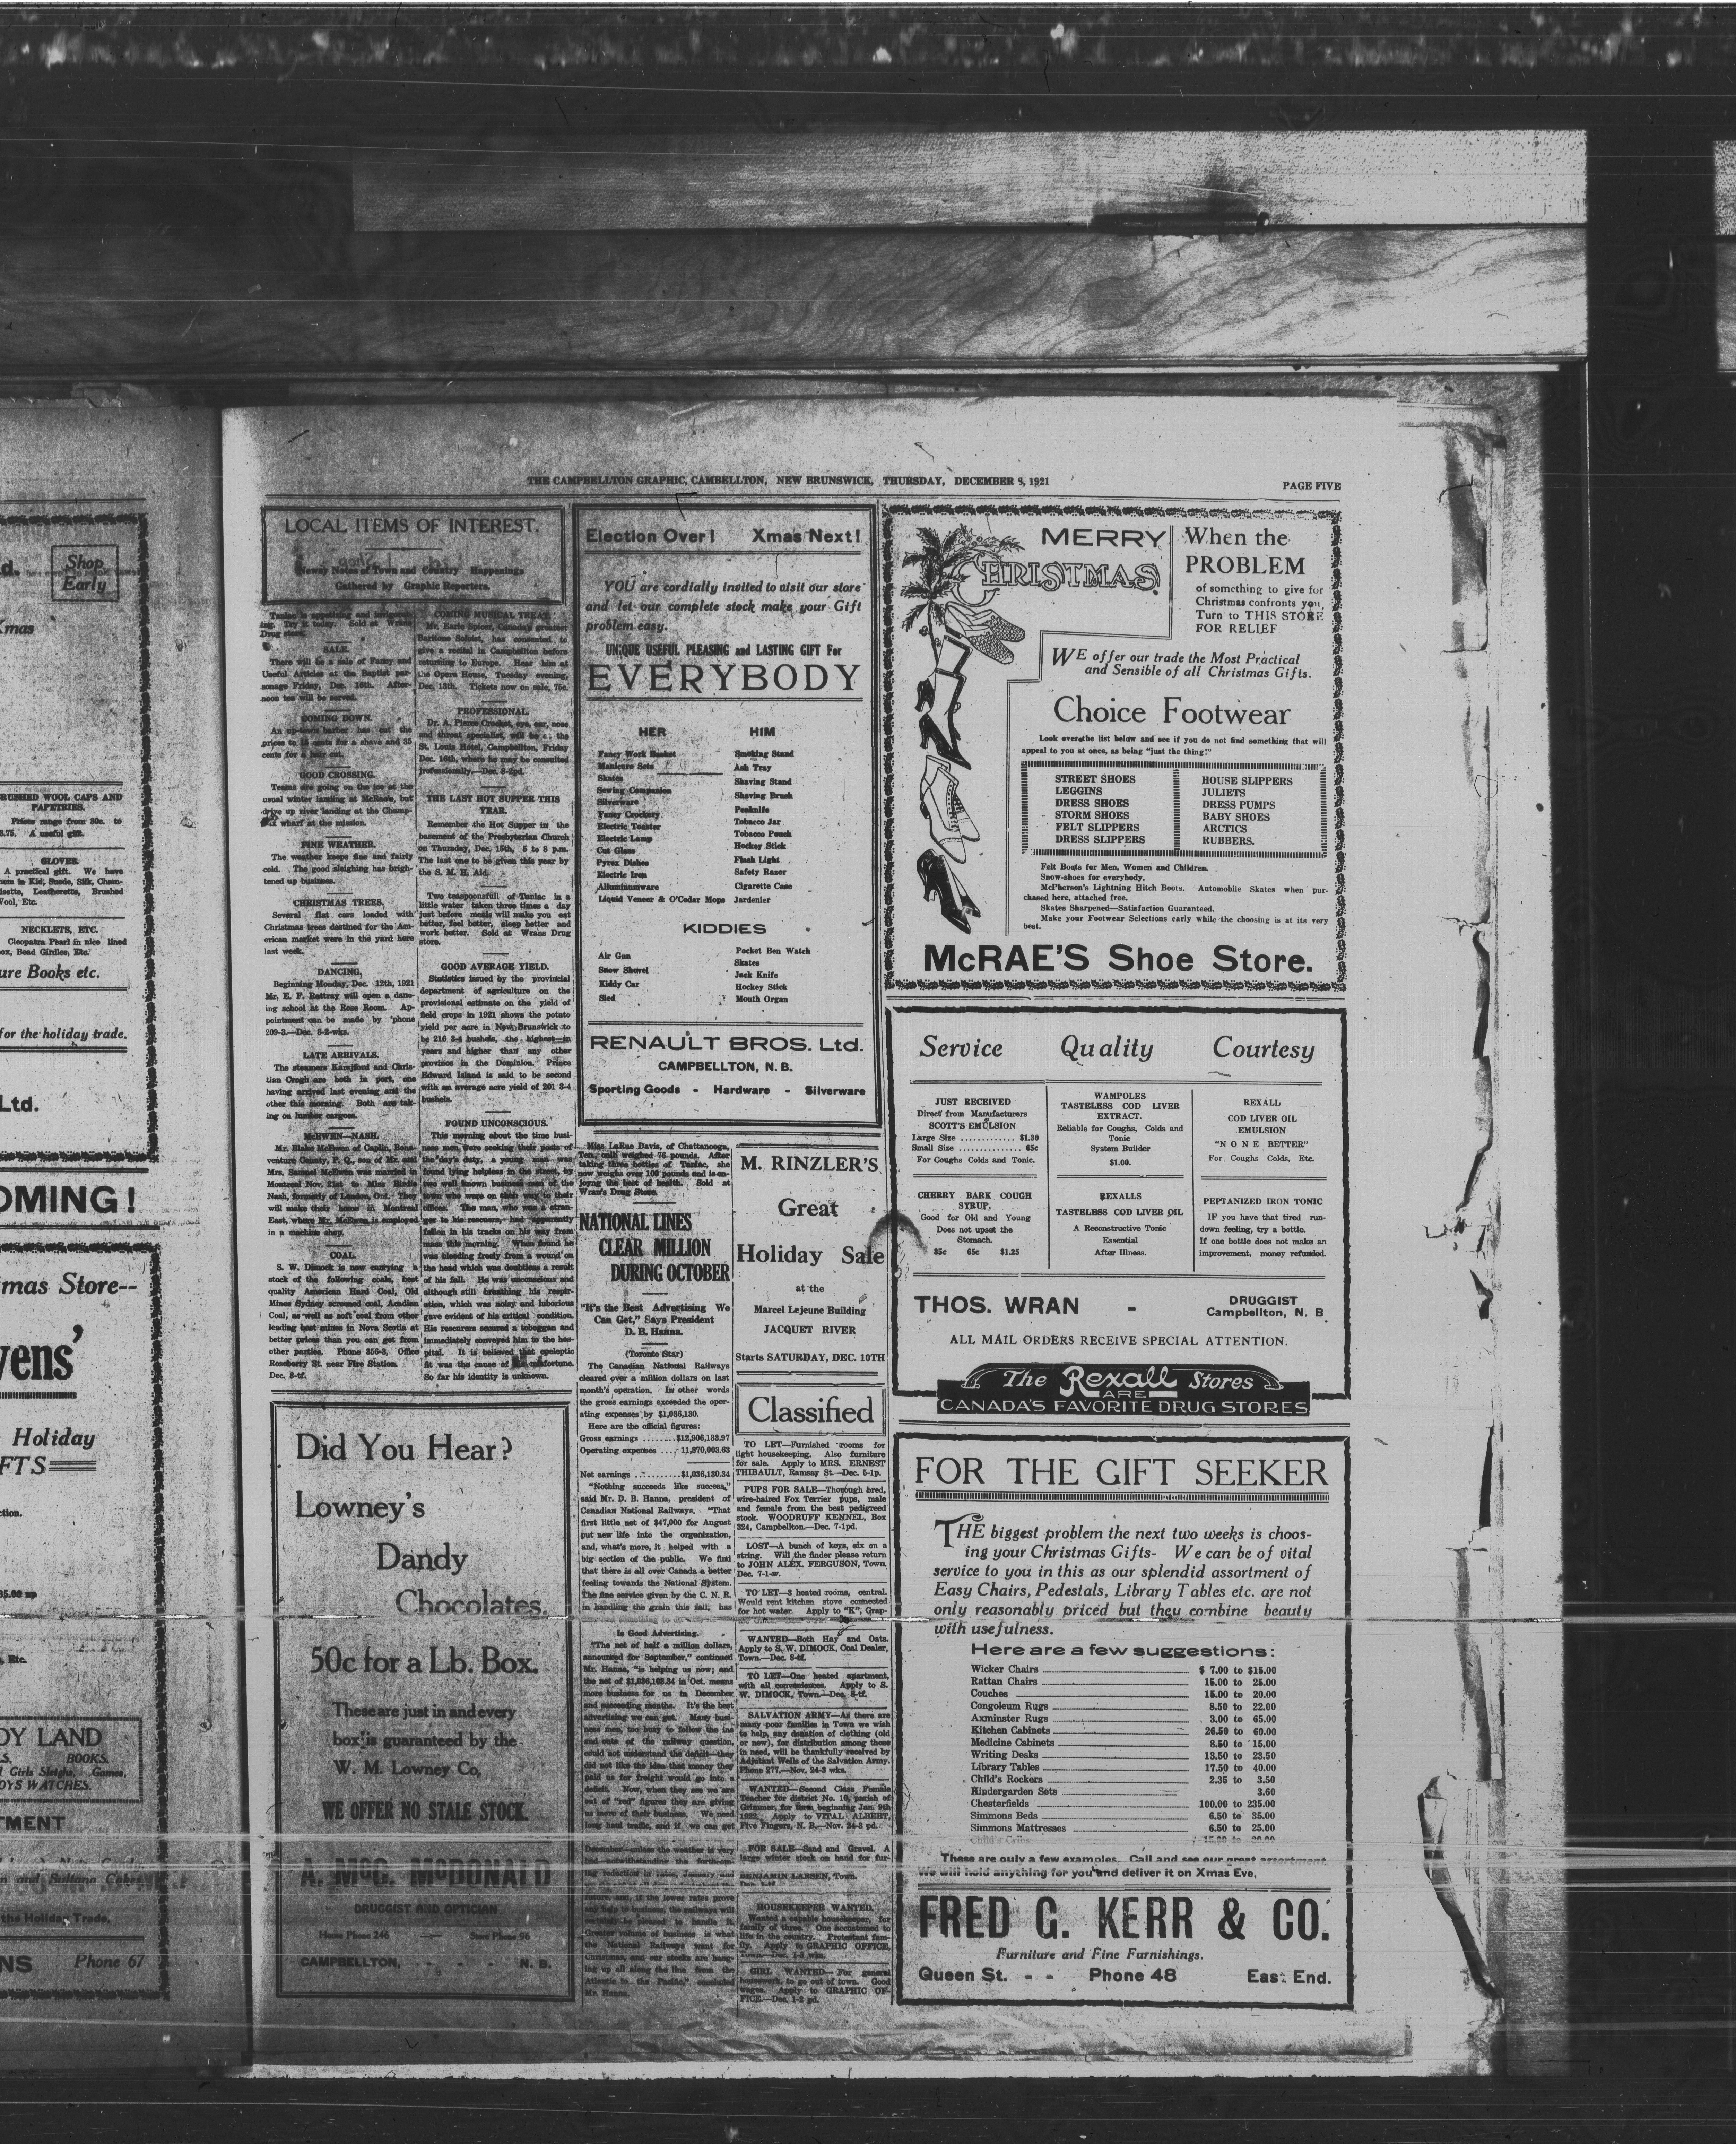 THE CAMPBELLTON GRAPHIC, CAMBELLTON, NEW BRUNSWICK, THURSDAY, DECEMBER 8, 1921
PAGE FIVE
LOCAL ITEMS OF INTEREST.
Newsy Notes of Town and Country Happenings
Gathered by Graphic Reporters.
Tanlac is appetizing and invigorat-
ing. Try it today. Sold at Wrans
Drug store.
SALE.
There will be a sale of Fancy and
Useful Articles at the Baptist par-
sonage Friday, Dec. 16th. After-
noon tea will be served.
COMING DOWN.
An up-town barber has cut the
prices to 15 cents for a shave and 35
cents for a hair cut.
GOOD CROSSING.
Teams are going on the ice at the
usual winter landing at McRae's, but
drive up river landing at the Champ-
wharf at the mission.
FINE WEATHER.
The weather keeps fine and fairly
cold. The good sleighing has brigh-
tened up business.
CHRISTMAS TREES.
Several flat cars loaded with
Christmas trees destined for the Am-
erican market were in the yard here
last week.
DANCING,
Beginning Monday, Dec. 12th, 1921
Mr. E. F. Rattray will open a danc-
ing school at the Rose Room. Ap-
pointment can be made by 'phone
209-3.—Dec. 8-2-wks.
LATE ARRIVALS.
The steamers Karafjord and Chris-
tian Crogh are both in port, one
having arrived last evening and the
other this morning. Both are tak-
ing on lumber cargoes.
McEWEN—NASH.
Mr. Blake McEwen of Caplin, Bona-
venture County, P. Q., son of Mr. and
Mrs. Samuel McEwen was married in
Montreal Nov. 21st to Miss Birdie
Nash, formerly of London, Ont. They
will make their home in Montreal
East, where Mr. McEwen is employed
in a machine shop.
COAL.
S. W. Dimock is now carrying a
stock of the following coals, best
quality American Hard Coal, Old
Mines Sydney screened coal, Acadian
Coal, as well as soft coal from other
leading best mines in Nova Scotia at
better prices than you can get from
other parties. Phone 356-3, Office
Roseberry St. near Fire Station.
Dec. 8-tf.
COMING MUSICAL TREAT
Mr. Earle Spicer, Canada's greatest
Baritone Soloist, has consented to
give a recital in Campbellton before
returning to Europe. Hear him at
the Opera House, Tuesday evening,
Dec. 13th. Tickets now on sale, 75c.
PROFESSIONAL
Dr. A. Pierre Crocket, eye, ear, nose
and throat specialist, will be at the
St. Louis Hotel, Campbellton, Friday
Dec. 16th, where he may be consulted
professionally.—Dec. 8-2pd.
THE LAST HOT SUPPER THIS
YEAR.
Remember the Hot Supper in the
basement of the Presbyterian Church
on Thursday, Dec. 15th, 5 to 8 p.m.
The last one to be given this year by
the S. M. H. Aid.
Two teaspoonsfull of Tanlac in a
little water taken three times a day
just before meals will make you eat
better, feel better, sleep better and
work better. Sold at Wrans Drug
store.
GOOD AVERAGE YIELD.
Statistics issued by the provincial
department of agriculture on the
provisional estimate on the yield of
field crops in 1921 shows the potato
yield per acre in New Brunswick to
be 216 3-4 bushels, the highest in
years and higher than any other
province in the Dominion. Prince
Edward Island is said to be second
with an average acre yield of 201 3-4
bushels.
FOUND UNCONSCIOUS.
This morning about the time busi-
ness men were seeking their posts of
the day's duty, a young man was
found lying helpless in the street, by
two well known business men of the
town who were on their way to their
offices. The man, who was a stran-
ger to his rescuers, had apparently
fallen in his tracks on his way from
mass this morning. When found he
was bleeding freely from a wound on
the head which was doubtless a result
of his fall. He was unconscious and
although still breathing his respir-
ation, which was noisy and luborious
gave evident of his critical condition.
His rescurers secured a toboggan and
immediately conveyed him to the hos-
pital. It is believed that epeleptic
fit was the cause of his misfortune.
So far his identity is unknown.
Did You Hear?
Lowney's
Dandy
Chocolates.
50c for a Lb. Box.
These are just in and every
box is guaranteed by the
W. M. Lowney Co,
WE OFFER NO STALE STOCK.
A. McG. McDONALD
DRUGGIST AND OPTICIAN
House Phone 246 — Store Phone 96
CAMPBELLTON, - - - N. B.
Election Over! Xmas Next!
YOU are cordially invited to visit our store
and let our complete stock make your Gift
problem easy.
UNIQUE USEFUL PLEASING and LASTING GIFT For
EVERYBODY
HER
Fancy Work Basket
Manicure Sets
Skates
Sewing Companion
Silverware
Fancy Crockery
Electric Toaster
Electric Lamp
Cut Glass
Pyrex Dishes
Electric Iron
Alluminumware
Liquid Veneer & O'Cedar Mops
HIM
Smoking Stand
Ash Tray
Shaving Stand
Shaving Brush
Penknife
Tobacco Jar
Tobacco Pouch
Hockey Stick
Flash Light
Safety Razor
Cigarette Case
Jardenier
KIDDIES
Air Gun
Snow Shovel
Kiddy Car
Sled
Pocket Ben Watch
Skates
Jack Knife
Hockey Stick
Mouth Organ
RENAULT BROS. Ltd.
CAMPBELLTON, N. B.
Sporting Goods - Hardware - Silverware
Miss LaRue Davis, of Chattanooga,
Ten., only weighed 76 pounds. After
taking three bottles of Tanlac, she
now weighs over 100 pounds and is en-
joyng the best of health. Sold at
Wran's Drug Store.
NATIONAL LINES
CLEAR MILLION
DURING OCTOBER
"It's the Best Advertising We
Can Get," Says President
D. B. Hanna.
(Toronto Star)
The Canadian National Railways
cleared over a million dollars on last
month's operation. In other words
the gross earnings exceeded the oper-
ating expenses by $1,036,130.
Here are the official figures:
Gross earnings ........$12,906,133.97
Operating expenses .... 11,870,003.63
Net earnings ..........$1,036,130.34
"Nothing succeeds like success,"
said Mr. D. B. Hanna, president of
Canadian National Railways. "That
first little net of $47,000 for August
put new life into the organization,
and, what's more, it helped with a
big section of the public. We find
that there is all over Canada a better
feeling towards the National System.
The fine service given by the C. N. R.
in handling the grain this fall, has
Is Good Advertising.
"The net of half a million dollars,
announced for September," continued
Mr. Hanna, "is helping us now; and
the net of $1,036,103.34 in Oct. means
more business for us in December
and succeeding months. It's the best
advertising we can get. Many busi-
ness men, too busy to follow the ins
and outs of the railway question,
could not understand the deficit—they
did not like the idea that money they
paid us for freight would go into a
deficit. Now, when they see we are
out of "red" figures they are giving
us more of their business. We need
long haul traffic, and if we can get
December—unless the weather is very
notwithstanding the forthcom-
ing reduction in rates, January and
return and, if the lower rates prove
any help to business, the railways will
certainly be pleased to handle it.
Greater volume of business is what
the National Railways want for
Christmas, and our stocks are hang-
ing up all along the line from the
Atlantic to the Pacific," concluded
Mr. Hanna.
M. RINZLER'S
Great
Holiday Sale
at the
Marcel Lejeune Building
JACQUET RIVER
Starts SATURDAY, DEC. 10TH
Classified
TO LET—Furnished rooms for
light housekeeping. Also furniture
for sale. Apply to MRS. ERNEST
THIBAULT, Ramsay St.—Dec. 5-1p.
PUPS FOR SALE—Thorough bred,
wire-haired Fox Terrier pups, male
and female from the best pedigreed
stock. WOODRUFF KENNEL, Box
324, Campbellton.—Dec. 7-1pd.
LOST—A bunch of keys, six on a
string. Will the finder please return
to JOHN ALEX. FERGUSON, Town.
Dec. 7-1-w.
TO LET—3 heated rooms, central.
Would rent kitchen stove connected
for hot water. Apply to "K", Grap-
WANTED—Both Hay and Oats.
Apply to S. W. DIMOCK, Coal Dealer,
Town.—Dec. 8-tf.
TO LET—One heated apartment,
with all conveniences. Apply to S.
W. DIMOCK, Town.—Dec. 8-tf.
SALVATION ARMY—As there are
many poor families in Town we wish
to help, any donation of clothing (old
or new), for distribution among those
in need, will be thankfully received by
Adjutant Wells of the Salvation Army.
Phone 277.—Nov. 24-3 wks.
WANTED—Second Class Female
Teacher for district No. 10, parish of
Grimmer, for Term beginning Jan. 9th
1922. Apply to VITAL ALBERT,
Five Fingers, N. B.—Nov. 24-3 pd.
FOR SALE—Sand and Gravel. A
large winter stock on hand for fur-
BENJAMIN LARSEN, Town.
HOUSEKEEPER WANTED.
Wanted a capable housekeeper, for
family of three. One accustomed to
life in the country. Protestant fam-
ily. Apply to GRAPHIC OFFICE,
Town—Dec. 1-3 wks.
GIRL WANTED— For general
housework, to go out of town. Good
wages. Apply to GRAPHIC OF-
FICE.—Dec. 1-2 pd.
MERRY
CHRISTMAS
When the
PROBLEM
of something to give for
Christmas confronts you,
Turn to THIS STORE
FOR RELIEF
WE offer our trade the Most Practical
and Sensible of all Christmas Gifts.
Choice Footwear
Look over the list below and see if you do not find something that will
appeal to you at once, as being "just the thing!"
STREET SHOES
LEGGINS
DRESS SHOES
STORM SHOES
FELT SLIPPERS
DRESS SLIPPERS
HOUSE SLIPPERS
JULIETS
DRESS PUMPS
BABY SHOES
ARCTICS
RUBBERS.
Felt Boots for Men, Women and Children.
Snow-shoes for everybody.
McPherson's Lightning Hitch Boots. Automobile Skates when pur-
chased here, attached free.
Skates Sharpened—Satisfaction Guaranteed.
Make your Footwear Selections early while the choosing is at its very
best.
McRAE'S Shoe Store.
Service Quality Courtesy
JUST RECEIVED
Direct from Manufacturers
SCOTT'S EMULSION
Large Size ............. $1.30
Small Size .............. 65c
For Coughs Colds and Tonic.
WAMPOLES
TASTELESS COD LIVER
EXTRACT.
Reliable for Coughs, Colds and
Tonic
System Builder
$1.00.
REXALL
COD LIVER OIL
EMULSION
"NONE BETTER"
For Coughs Colds, Etc.
CHERRY BARK COUGH
SYRUP,
Good for Old and Young
Does not upset the
Stomach.
35c 65c $1.25
REXALLS
TASTELESS COD LIVER OIL
A Reconstructive Tonic
Essential
After Illness.
PEPTANIZED IRON TONIC
IF you have that tired run-
down feeling, try a bottle.
If one bottle does not make an
improvement, money refunded.
THOS. WRAN - DRUGGIST
Campbellton, N. B
ALL MAIL ORDERS RECEIVE SPECIAL ATTENTION.
The Rexall Stores
ARE
CANADA'S FAVORITE DRUG STORES
FOR THE GIFT SEEKER
THE biggest problem the next two weeks is choos-
ing your Christmas Gifts- We can be of vital
service to you in this as our splendid assortment of
Easy Chairs, Pedestals, Library Tables etc. are not
only reasonably priced but they combine beauty
with usefulness.
Here are a few suggestions:
Wicker Chairs $ 7.00 to $15.00
Rattan Chairs 15.00 to 25.00
Couches 15.00 to 20.00
Congoleum Rugs 8.50 to 22.00
Axminster Rugs 3.00 to 65.00
Kitchen Cabinets 26.50 to 60.00
Medicine Cabinets 8.50 to 15.00
Writing Desks 13.50 to 23.50
Library Tables 17.50 to 40.00
Child's Rockers 2.35 to 3.50
Kindergarden Sets 3.60
Chesterfields 100.00 to 235.00
Simmons Beds 6.50 to 35.00
Simmons Mattresses 6.50 to 25.00
Child's Cribs 15.00 to 20.00
These are only a few examples. Call and see our great assortment
We will hold anything for you and deliver it on Xmas Eve,
FRED G. KERR & CO.
Furniture and Fine Furnishings.
Queen St. - - Phone 48 East End.
Shop
Early
Xmas
CRUSHED WOOL CAPS AND
PAPETRIES.
Prices range from 80c. to
3.75. A useful gift.
GLOVER
A practical gift. We have
them in Kid, Suede, Silk, Cham-
oisette, Leatherette, Brushed
Wool, Etc.
NECKLETS, ETC.
Cleopatra Pearl in nice lined
box, Bead Girdles, Etc.
ure Books etc.
for the holiday trade.
Ltd.
OMING!
mas Store--
vens'
Holiday
FTS
ction.
35.00 up
Etc.
DY LAND
BOOKS.
Girls Sleighs, Games,
OYS WATCHES.
TMENT
and Sultana Cakes
the Holiday Trade,
NS Phone 67